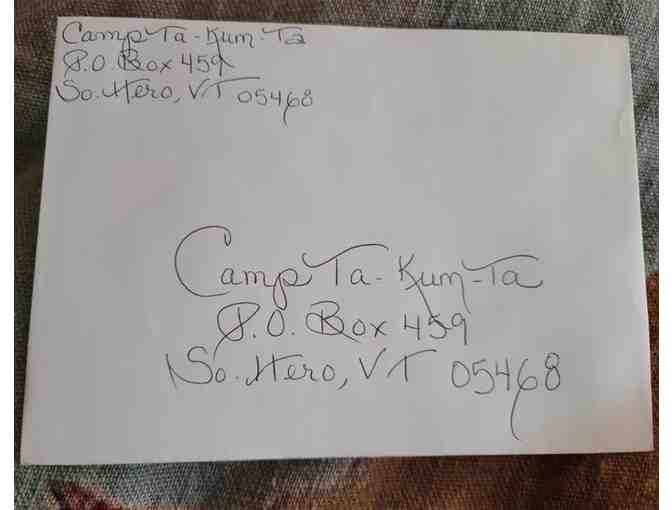 Camp Ta-Kum-Ta
P.O. Box 459
So. Hero, VT 05468
Camp Ta-Kum-Ta
P.O. Box 459
So. Hero, VT 05468